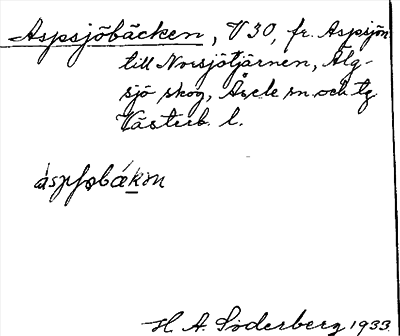 Aspsjöbäcken, V 30, fr. Aspsjön
till Norsjötjärnen, Älg-
sjö skog, Åsele sn och tg
Västerb. l.
H. A. Söderberg 1933